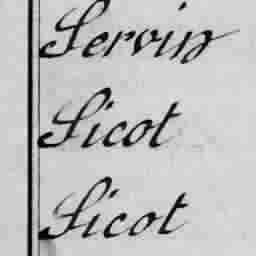 Servin
Sicot
Sicot